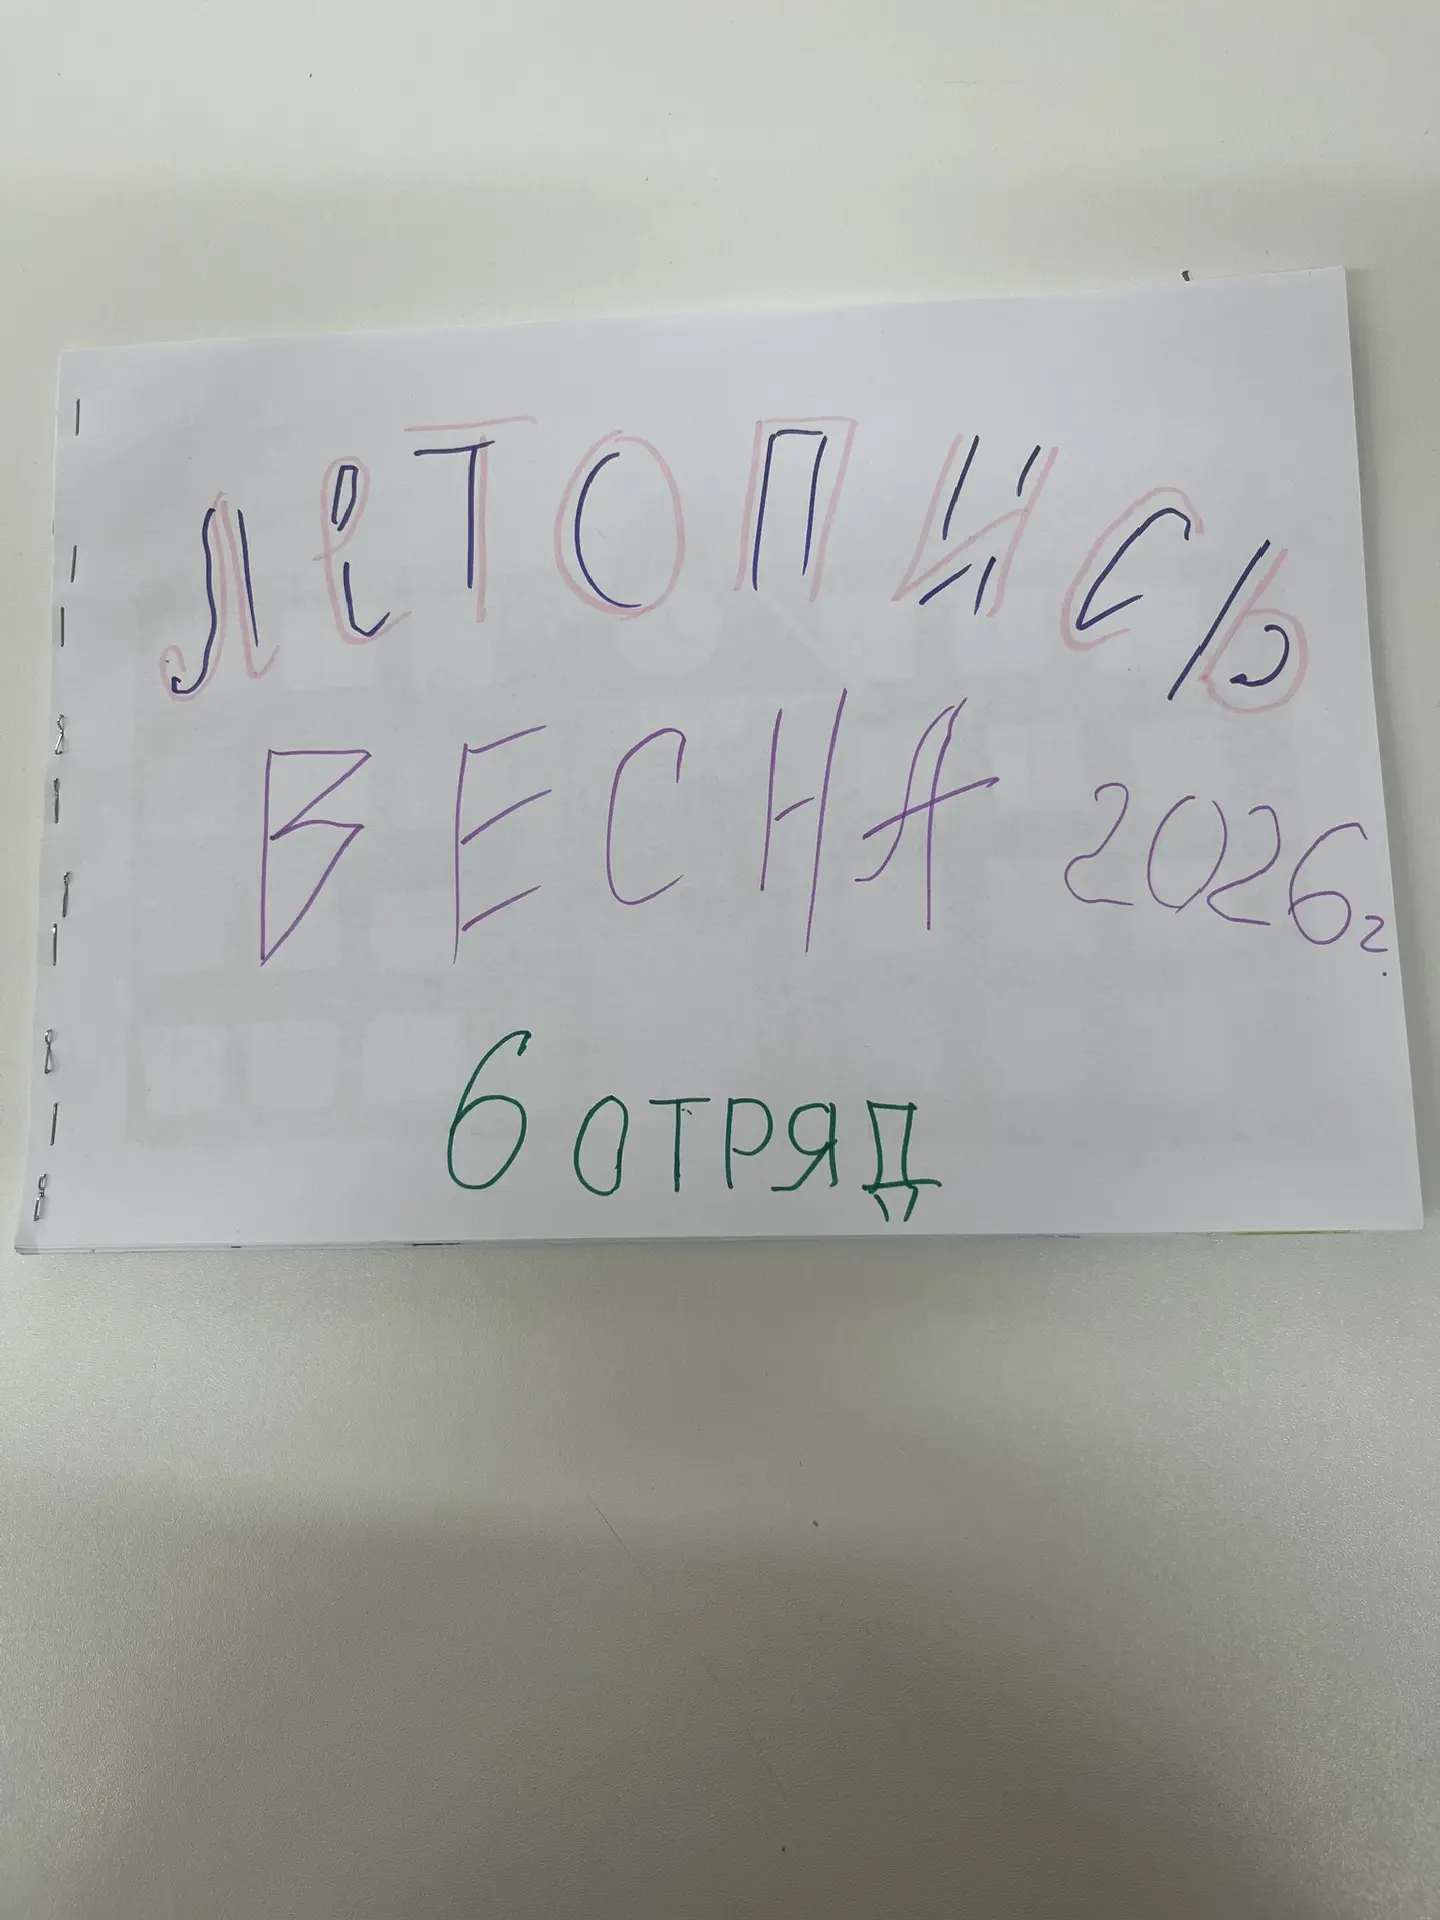 Летопись
ВЕСНА 2026г.
6 отряд